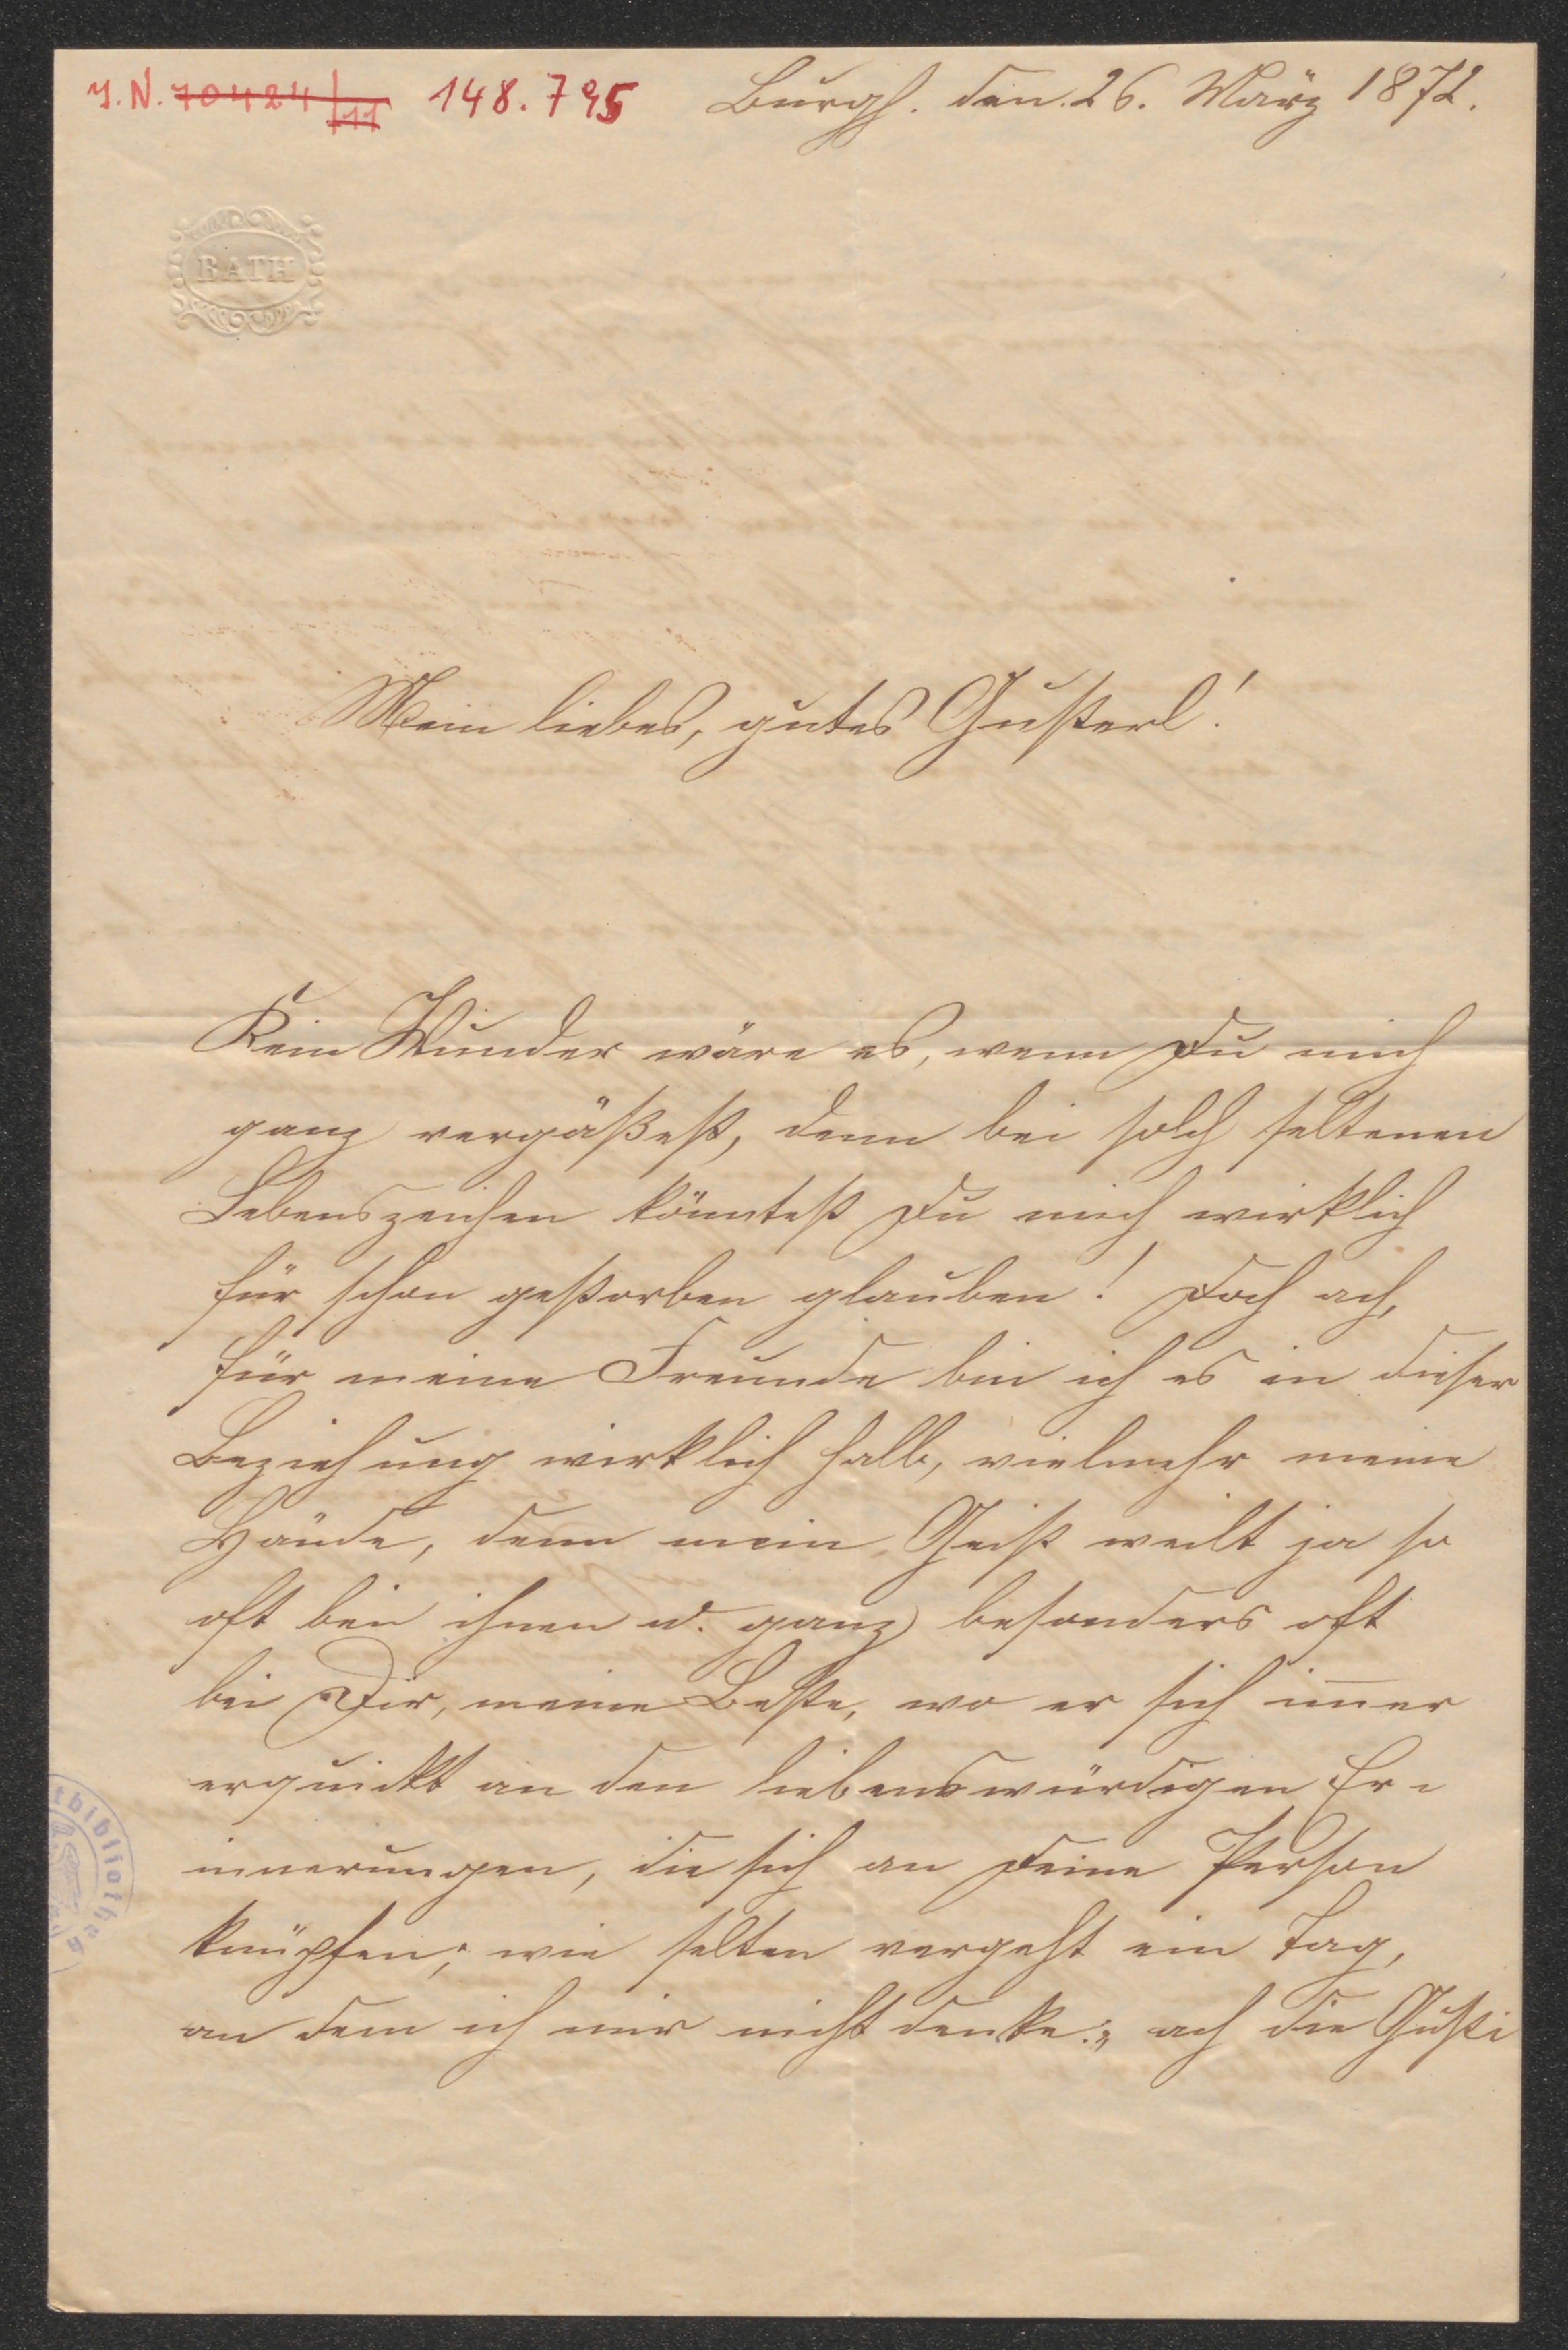 J.N. 70424/11 148.795 Burgh. den. 26. März 1872.
BATH
Mein liebes, gutes Gusterl!
Kein Wunder wäre es, wenn Du mich
ganz vergäßest, denn bei solch seltenen
Lebenszeichen könntest Du mich wirklich
für schon gestorben glauben! Doch ach,
für meine Freunde bin ich es in dieser
Beziehung wirklich halb, vielmehr meine
Hände, denn mein Geist weilt ja so
oft bei ihnen u. ganz besonders oft
bei Dir, meine Beste, wo er sich im̅er
erquickt an den liebenswürdigen Er-
innerungen, die sich an Deine Person
knüpfen; wie selten vergeht ein Tag,
an dem ich mir nicht denke: „ach die Gusti